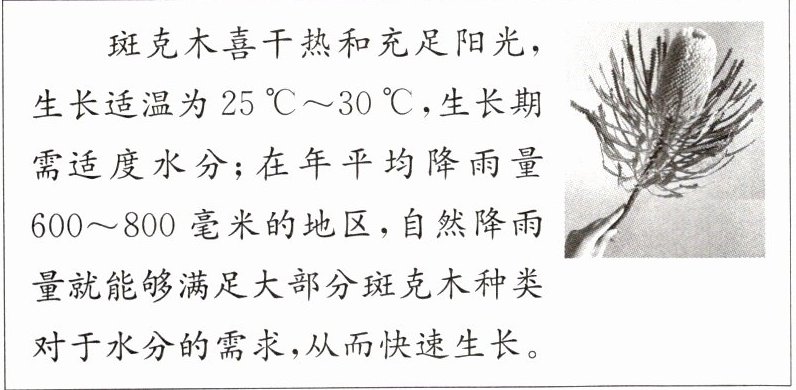 斑克木喜干热和充足阳光，
生长适温为 25 ℃～30 ℃，生长期
需适度水分；在年平均降雨量
600～800 毫米的地区，自然降雨
量就能够满足大部分斑克木种类
对于水分的需求，从而快速生长。